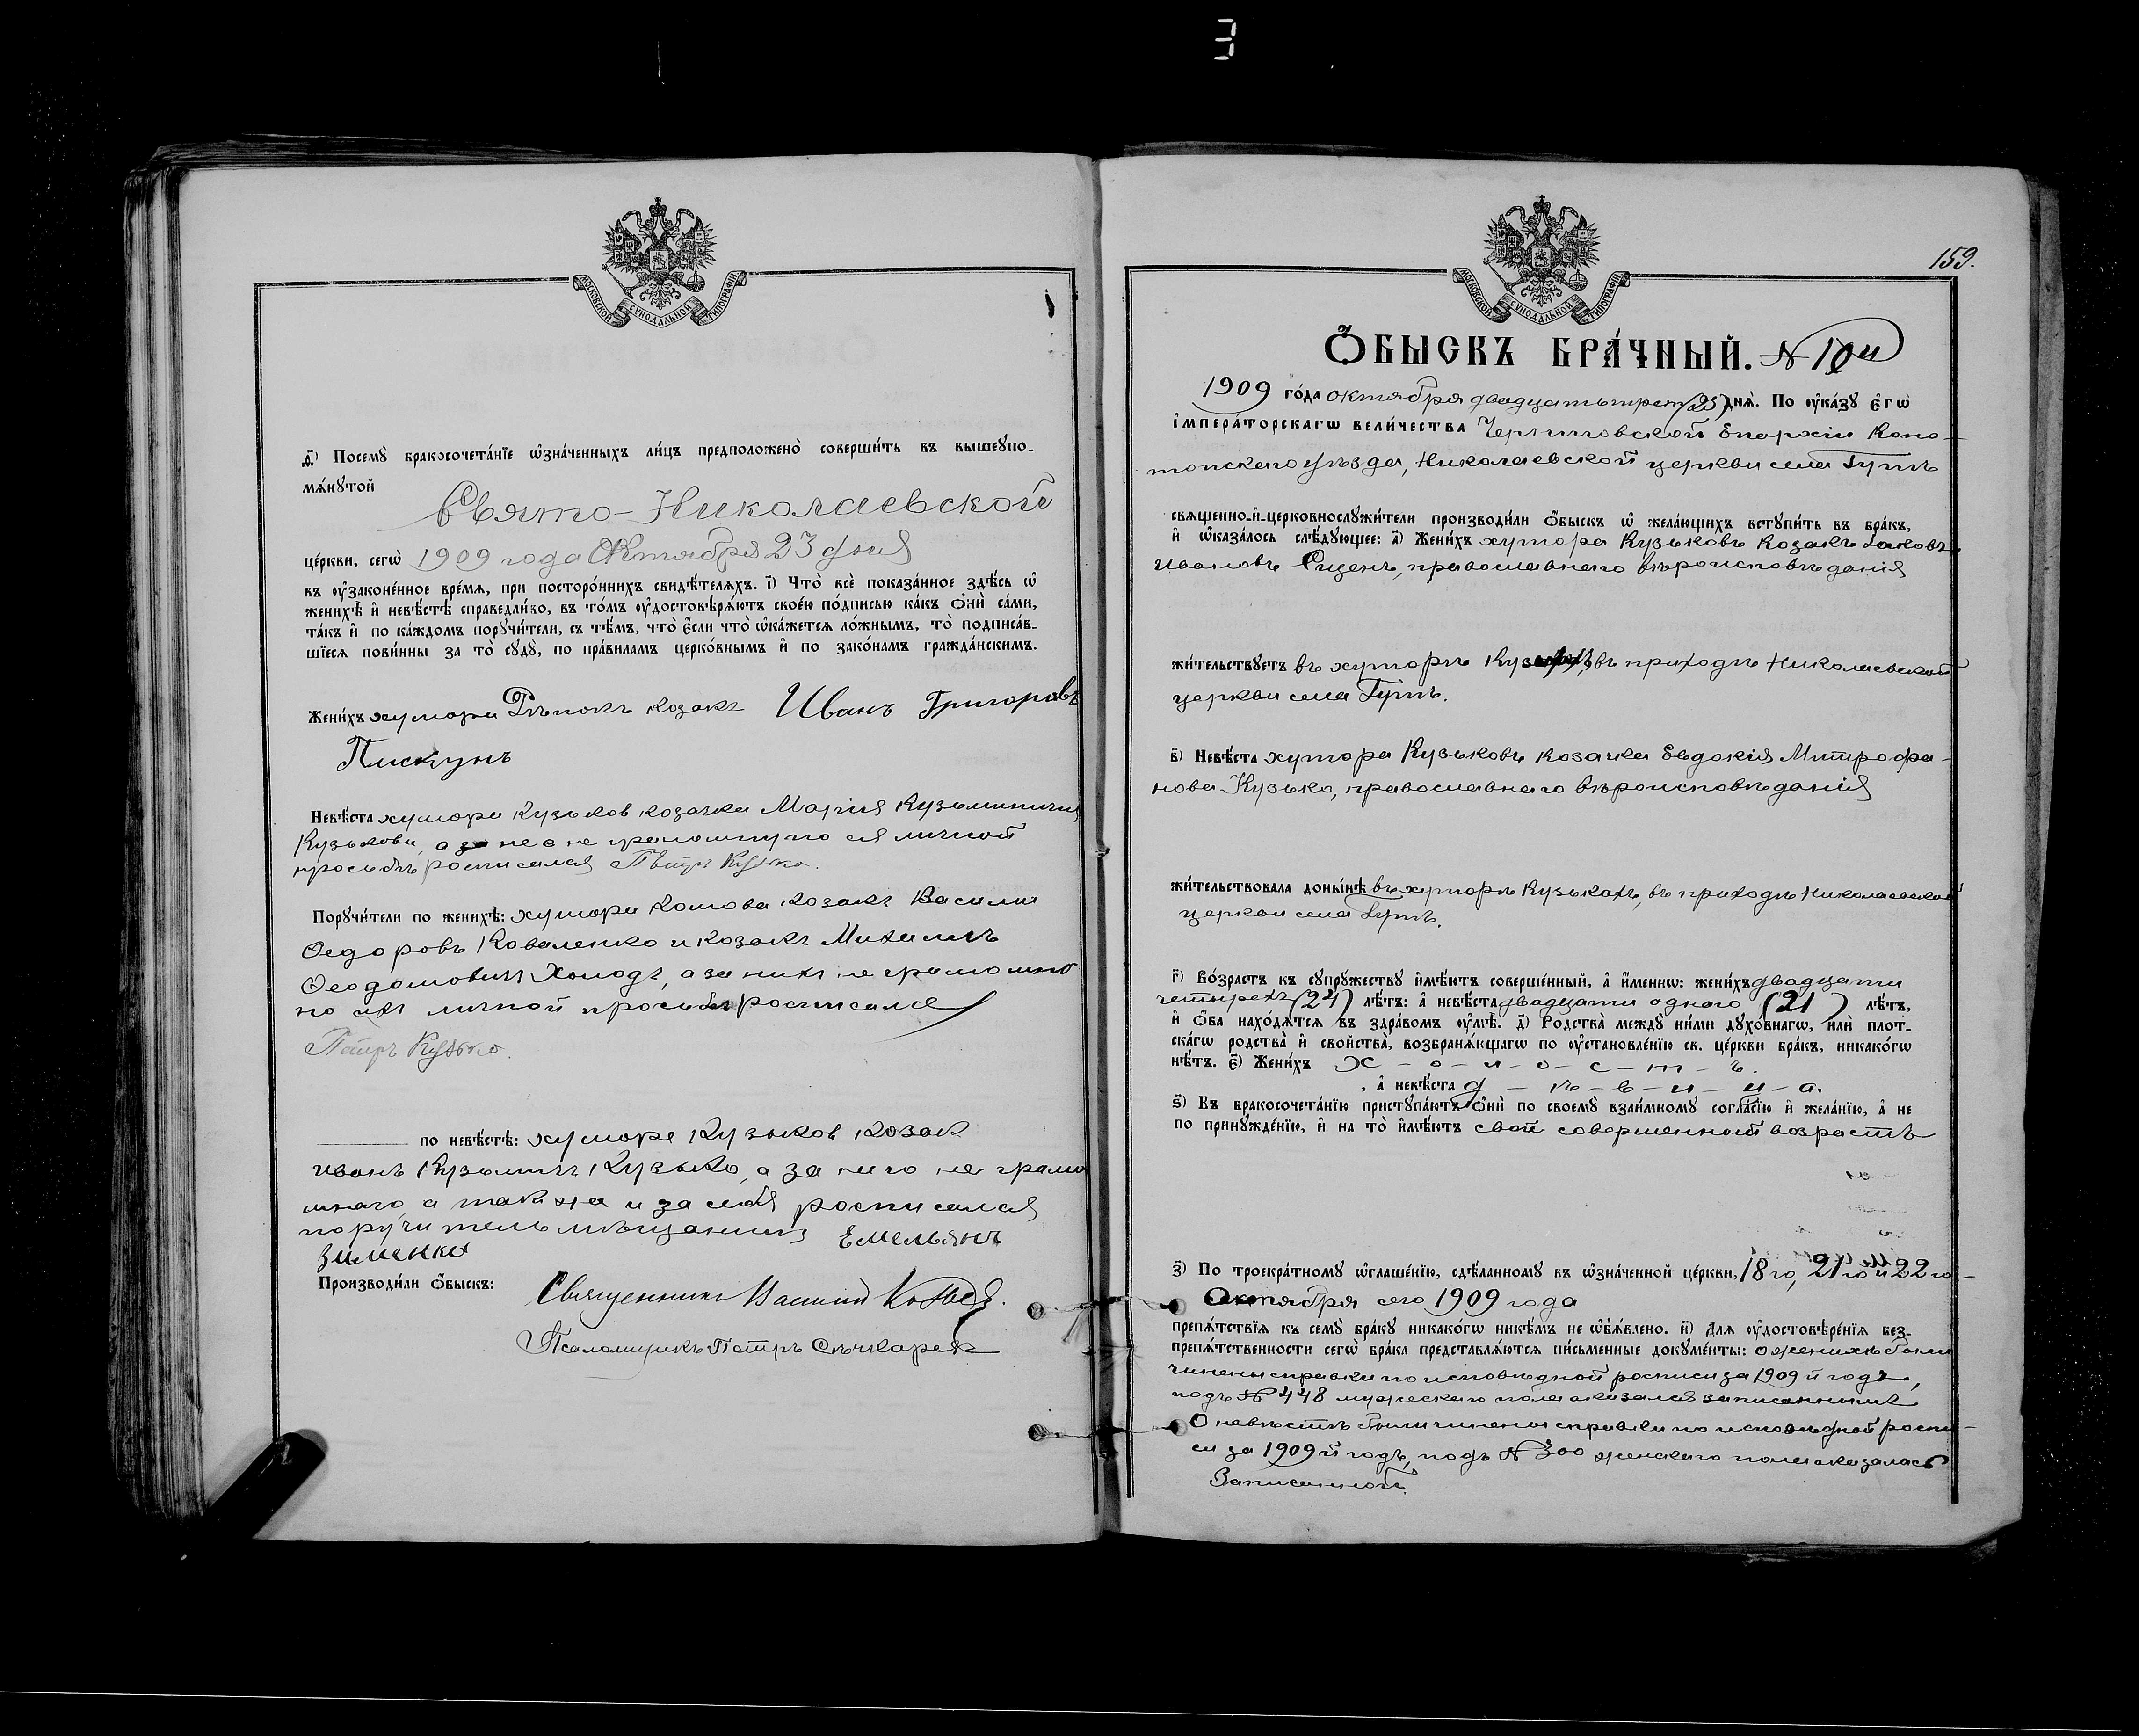 З
МОСКОВСКОЙ СѴНОДАЛЬНОЙ ТИПОГРАФІИ
д҃) Посемꙋ̀ бракосочета́нїе ѡ҆зна́ченныхъ ли́цъ предположено̀ соверши́ть въ вышеꙋпо-
мѧ́нꙋтой
Свято-Николаевской
це́ркви, сегѡ̀ 1909 года Октября 23 дня
въ ᲂу҆законе́нное вре́мѧ, при посторо́ннихъ свидѣ́телѧхъ. і҃) Что̀ всѐ показа́нное здѣ́сь ѡ҆
женихѣ̀ и҆ невѣ́стѣ справедли́во, въ то́мъ ᲂу҆достовѣрѧ́ютъ свое́ю по́дписью ка́къ ѻ҆нѝ са́ми,
та́къ и҆ по ка́ждомъ порꙋчи́тели, съ тѣ́мъ, что̀ є҆́сли что̀ ѡ҆ка́жетсѧ ло́жнымъ, то̀ подписа́в-
шїесѧ пови́нны за то̀ сꙋдꙋ̀, по пра́виламъ церко́внымъ и҆ по зако́намъ гражда́нскимъ.
Жени́хъ хутора козакъ Иванъ Григоровъ
Пискунъ
Невѣ́ста хутора Кузьков козачка Марія Кузьминична
Кузькова, а за нее не грамотную ея личной
просьбѣ росписался Петръ Кузько.
Порꙋчи́тели по женихѣ̀: хутора козакъ Василий
Ѳедоровъ Коваленко и козакъ Михаилъ
Холодъ, а за нихъ не грамотно
по ихъ личной просьбѣ росписался
Петръ Кузько.
по невѣ́стѣ: хутора Кузьков козак
Иванъ Кузьмичъ Кузько, а за него не грамо
тного а также и за себя росписался
поручитель мѣщанинъ Емельянъ
Зименко
Производи́ли ѻ҆́быскъ: Священникъ Василий
Псаломщикъ Петръ
159.
МОСКОВСКОЙ СѴНОДАЛЬНОЙ ТИПОГРАФІИ
Ѻ҆́БЫСКЪ БРА́ЧНЫЙ. №10й
1909 го́да октября двадцать трет (23) днѧ̀. По ᲂу҆ка́зꙋ є҆гѡ̀
і҆мпера́торскагѡ вели́чества Черниговской Епархіи Коно-
топскаго уѣзда, Николаевской церкви села Гутъ
свѧщенно-и҆-церковнослꙋжи́тели производи́ли ѻ҆́быскъ ѡ҆ жела́ющихъ встꙋпи́ть въ бра́къ,
и҆ ѡ҆каза́лось слѣ́дꙋющее: а҃) Жени́хъ хутора Кузьковъ козакъ Іаковъ
Ивановъ православнаго вѣроисповѣданія
жи́тельствꙋетъ въ хуторѣ въ приходѣ Николаевской
церкви села Гутъ.
в҃) Невѣ́ста хутора Кузьковъ козачка Евдокія Митрофа-
нова Кузько, православнаго вѣроисповѣданія
жи́тельствовала доны́нѣ въ хуторѣ Кузькахъ, въ приходѣ Николаевской
церкви села Гутъ.
г҃) Во́зрастъ къ сꙋпрꙋ́жествꙋ и҆мѣ́ютъ соверше́нный, а҆ и҆́меннѡ: жени́хъ двадцати
четырехъ (24) лѣ́тъ: а҆ невѣ́ста двадцати одного (21) лѣ́тъ,
и҆ ѻ҆́ба нахо́дѧтсѧ въ здра́вомъ ᲂу҆мѣ̀. д҃) Родства̀ междꙋ̀ ни́ми дꙋхо́внагѡ, и҆лѝ плот-
ска́гѡ родства̀ и҆ сво́йства, возбранѧ́ющагѡ по ᲂу҆становле́нїю св. це́ркви бра́къ, никако́гѡ
нѣ́тъ. є҃) Жени́хъ х - о - л - о - с - т - ъ.
, а҆ невѣ́ста д - ѣ - в - и - ц - а.
ѕ҃) Къ бракосочета́нїю пристꙋпа́ютъ ѻ҆нѝ по своемꙋ̀ взаи́мномꙋ согла́сїю и҆ жела́нїю, а҆ не
по принꙋжде́нїю, и҆ на то̀ и҆мѣ́ютъ свой совершенный возрастъ
з҃) По троекра́тномꙋ ѡ҆глаше́нїю, сдѣ́ланномꙋ въ ѡ҆зна́ченной це́ркви, 18го, 21го и 22го-
Октября сего 1909 года
препѧ́тствїѧ къ семꙋ̀ бра́кꙋ никако́гѡ никѣ́мъ не ѡ҆б̾ѧ́влено. и҃) Длѧ ᲂу҆достовѣре́нїѧ без-
препѧ́тственности сегѡ̀ бра́ка представлѧ́ютсѧ пи́сьменные докꙋме́нты: о женихѣ были
чинены справки по исповѣдной росписи за 1909й годъ,
подъ №448 мужескаго пола оказался записаннымъ
О невѣстѣ были чинены справки по исповѣдной роспи-
си за 1909й годъ, подъ №300 женскаго пола оказалась
Записанной.